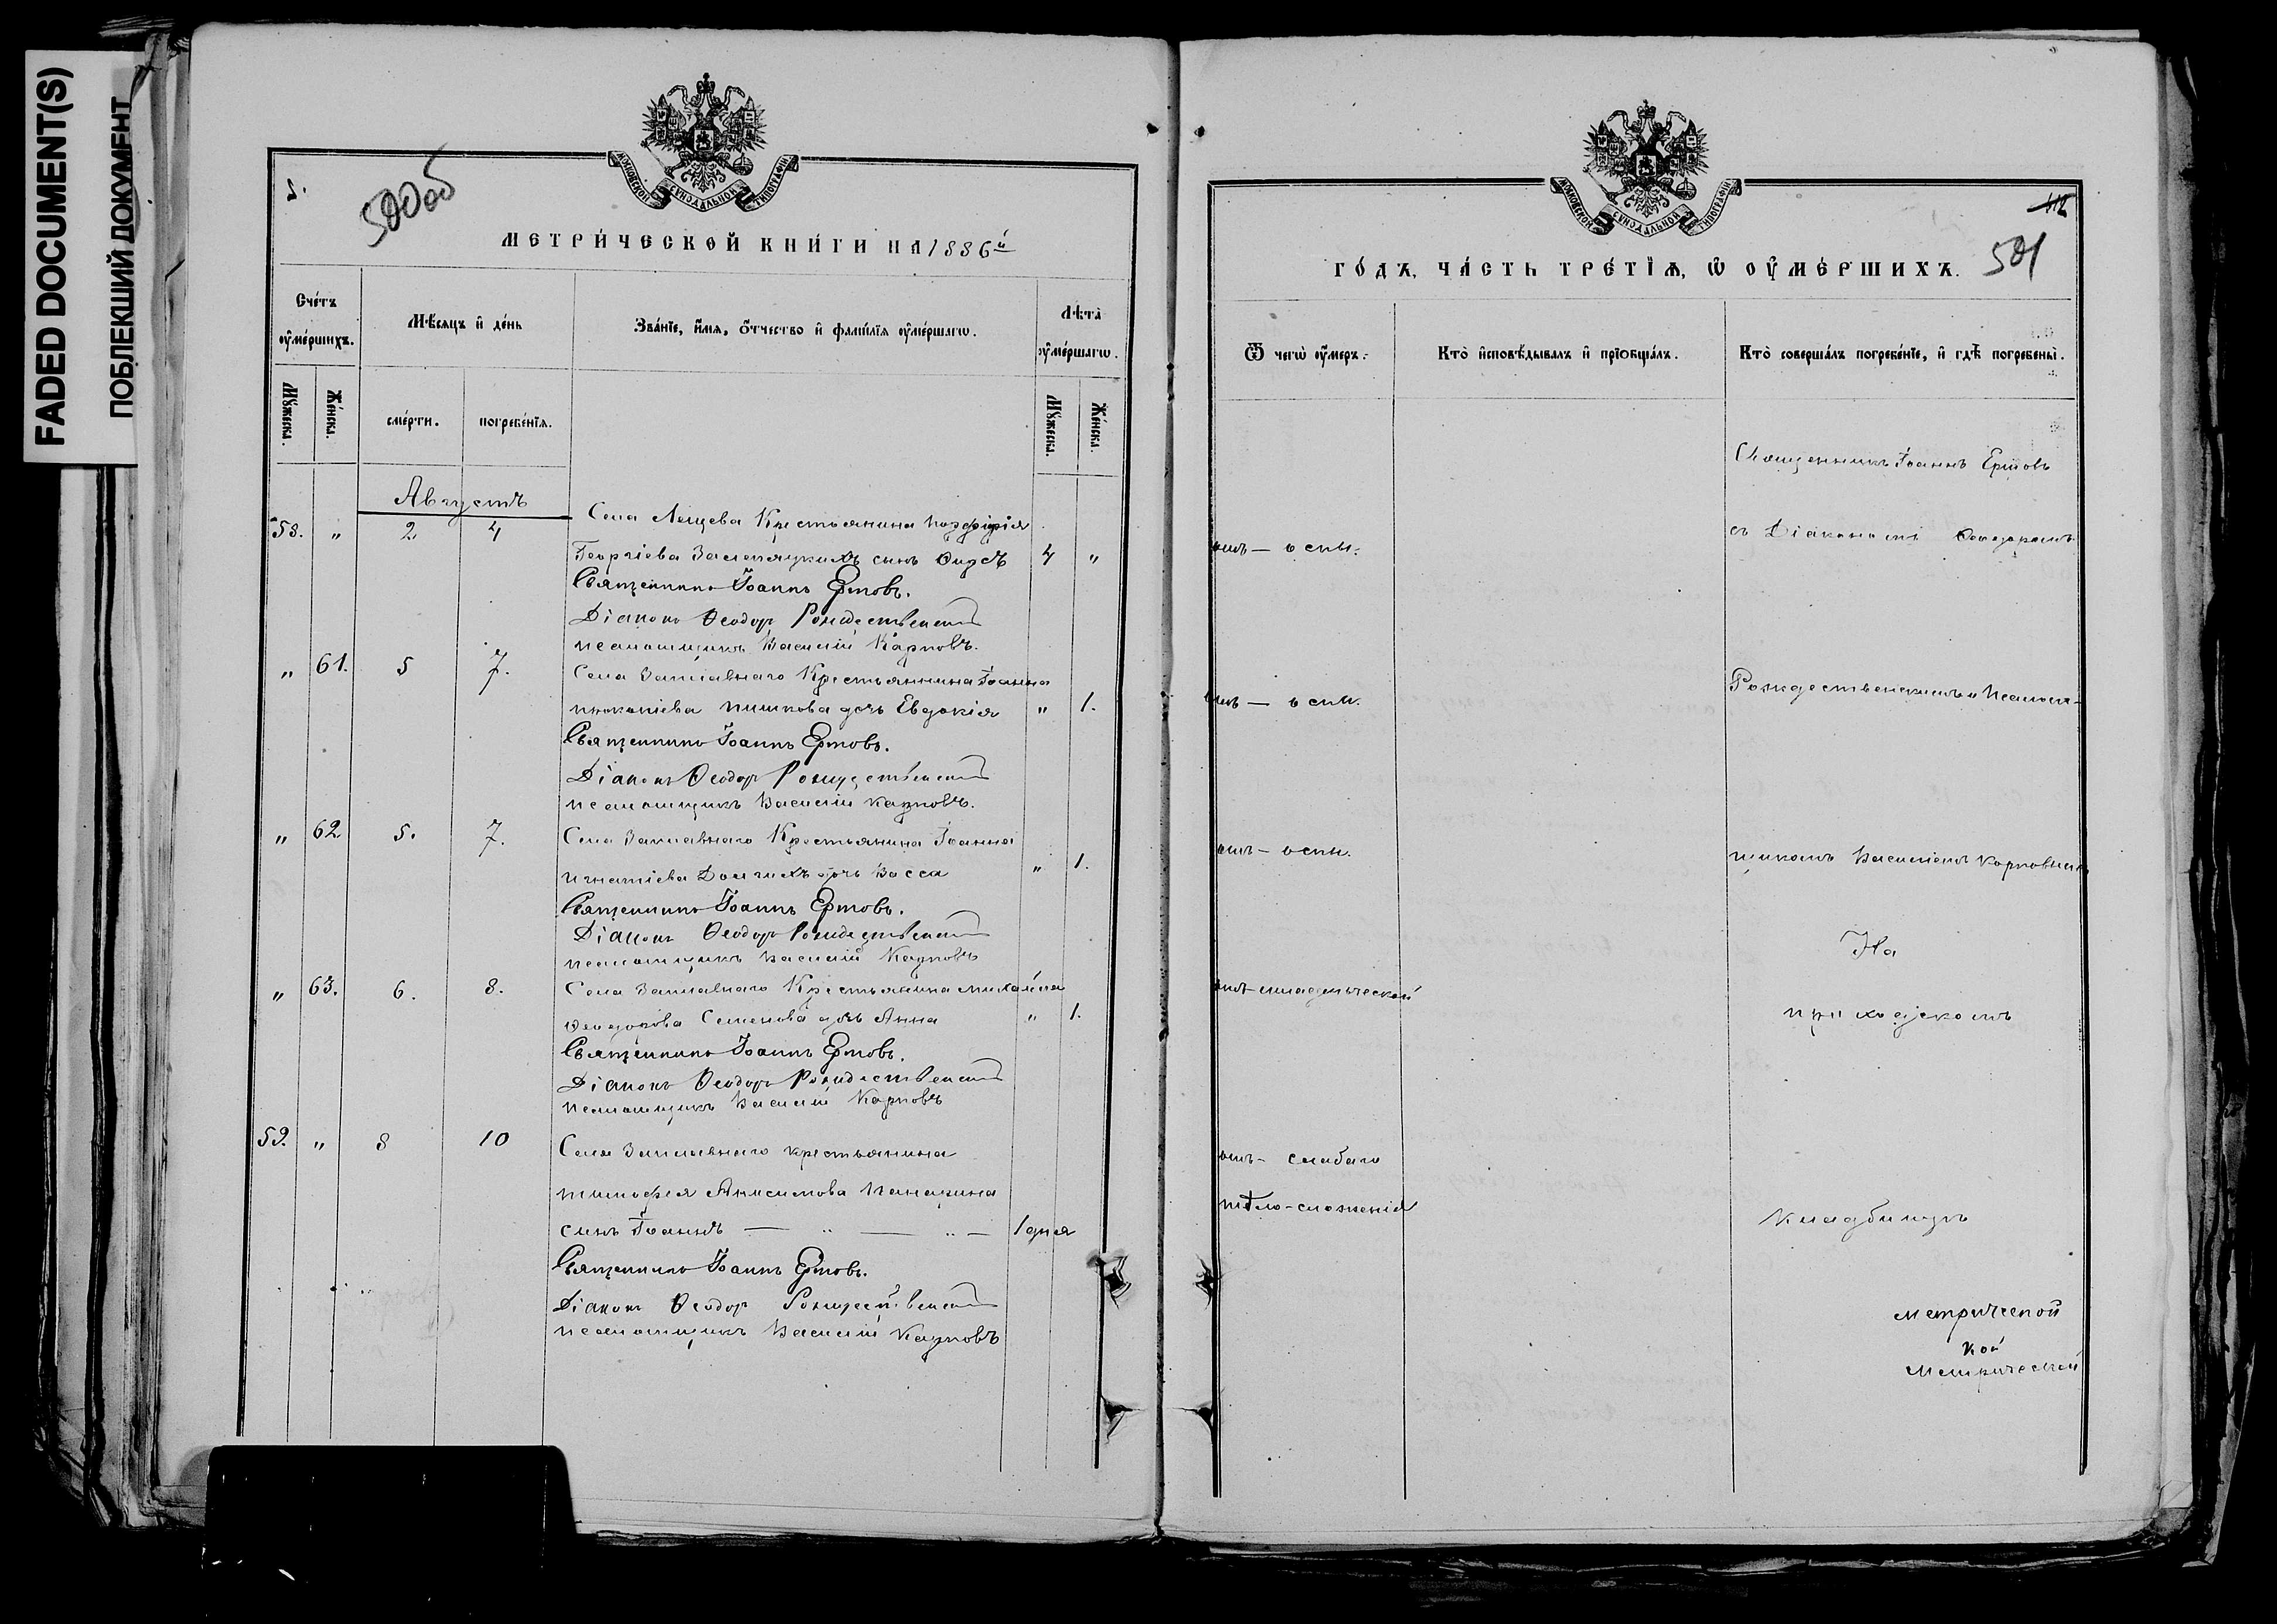 FADED DOCUMENT(S)
ПОБЛЕКШИЙ ДОКУМЕНТ
500об
МОСКОВСКОЙ СѴНОДАЛЬНОЙ ТИПОГРАФІИ
МЕТРИ́ЧЕСКОЙ КНИ́ГИ НА 1886й
Сче́тъ оу҆ме́ршихъ.
Мѣ́сяцъ и҆ де́нь
Зва́нїе, и҆́мя, ѻ҆́тчество и҆ фами́лїя оу҆ме́ршагѡ.
Лѣта̀ оу҆ме́ршагѡ.
Мꙋ́жеска.
Же́нска.
сме́рти.
погребе́нїя.
Мꙋ́жеска.
Же́нска.
Августъ
58. " 2. 4 Села Крестьянина Порфирія
Георгіева сынъ 4 "
Священникъ Іоаннъ Ершовъ.
Діаконъ Ѳеодоръ Рождественскій
псаломщикъ Василій Карповъ.
" 61. 5 7. Села Заплавнаго Крестьянина Іоанна
Прокопіева Пишкова дочь Евдокія " 1.
Священникъ Іоаннъ Ершовъ.
Діаконъ Ѳеодоръ Рождественскій
псаломщикъ Василій Карповъ.
" 62. 5. 7. Села Заплавнаго Крестьянина Іоанна
Игнатіева Долгихъ дочь Васса " 1.
Священникъ Іоаннъ Ершовъ.
Діаконъ Ѳеодоръ Рождественскій
псаломщикъ Василій Карповъ
" 63. 6. 8. Села Заплавнаго Крестьянина Михаила
Ѳеодорова Семенова дочь Анна " 1.
Священникъ Іоаннъ Ершовъ.
Діаконъ Ѳеодоръ Рождественскій
псаломщикъ Василій Карповъ
59. " 8 10 Села Заплавнаго крестьянина
Тимофея Анисимова Панарина
сынъ Іоаннъ — " — " — 1 дня
Священникъ Іоаннъ Ершовъ.
Діаконъ Ѳеодоръ Рождественскій
псаломщикъ Василій Карповъ
МОСКОВСКОЙ СѴНОДАЛЬНОЙ ТИПОГРАФІИ
501
ГО́ДЪ, ЧА́СТЬ ТРЕ́ТЇЯ, Ѡ҆ ОУ҆МЕ́РШИХЪ.
Ѿ чегѡ̀ оу҆́меръ.
Кто̀ и҆сповѣ́дывалъ и҆ прїѻбща́лъ.
Кто̀ соверша́лъ погребе́нїе, и҆ гдѣ̀ погребены̀.
Священникъ Іоаннъ Ершовъ
отъ — оспы.
съ Діакономъ Ѳеодоромъ
отъ — оспы.
Рождественскимъ и Псалом-
отъ — оспы.
щикомъ Василіемъ Карповымъ
На
отъ младенческой
приходскомъ
отъ — слабаго
тѣло-сложенія
Кладбищѣ
метрической
кой
Метрической